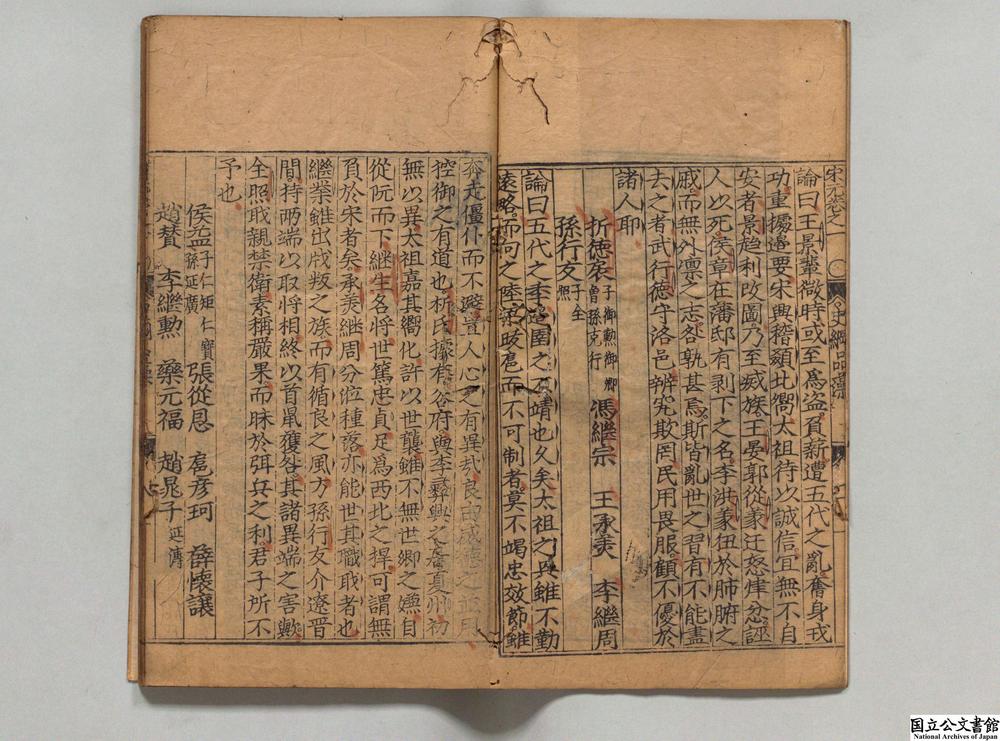 論曰王景輩微時或至爲盗負薪遭五代之亂奮身戎
功重據邊要宋興稽顙北嚮太祖待以誠信宜無不自
安者景趨利改圖乃至滅族王晏郭從義迁怒肆忿誣
人以死侯章在藩邸有剥下之名李洪義伍於肺腑之
戚而無外禀之志各孰甚焉斯皆亂世之習有不能盡
去之者武行德守洛邑辨究欺罔民用畏服顧不優於
諸人耶
折德扆子御勲御卿曾孫克行 馮繼宗 王承美 李繼周
孫行友子全照
論曰五代之季邉圉之不靖也久矣太祖之興雖不勤
遠略而向之陸梁跋扈而不可制者莫不竭忠效節雖
奔走僵仆而不避豈人心之有異哉良由威德之並用
控御之有道也折氏據有谷府與李彝興之居夏州初
無以異太祖嘉其嚮化許以世襲雖不無世卿之嫌自
從阮而下継生各将世篤忠貞足爲西北之捍可謂無
負於宋者矣承美継周分位種落亦能世其職者也
継業雖出戕叛之族而有循良之風方孫行友介遼晋
間持两端以取将相終以首鼠獲咎其諸異端之害歟
全照戢親禁衛素稱嚴果而昧於弭兵之利君子所不
予也
侯益子仁矩仁寶孫延廣 張從恩 扈彦珂 薛懐讓
趙賛 李繼勲 藥元福 趙晁子延溥
国立公文書館
National Archives of Japan